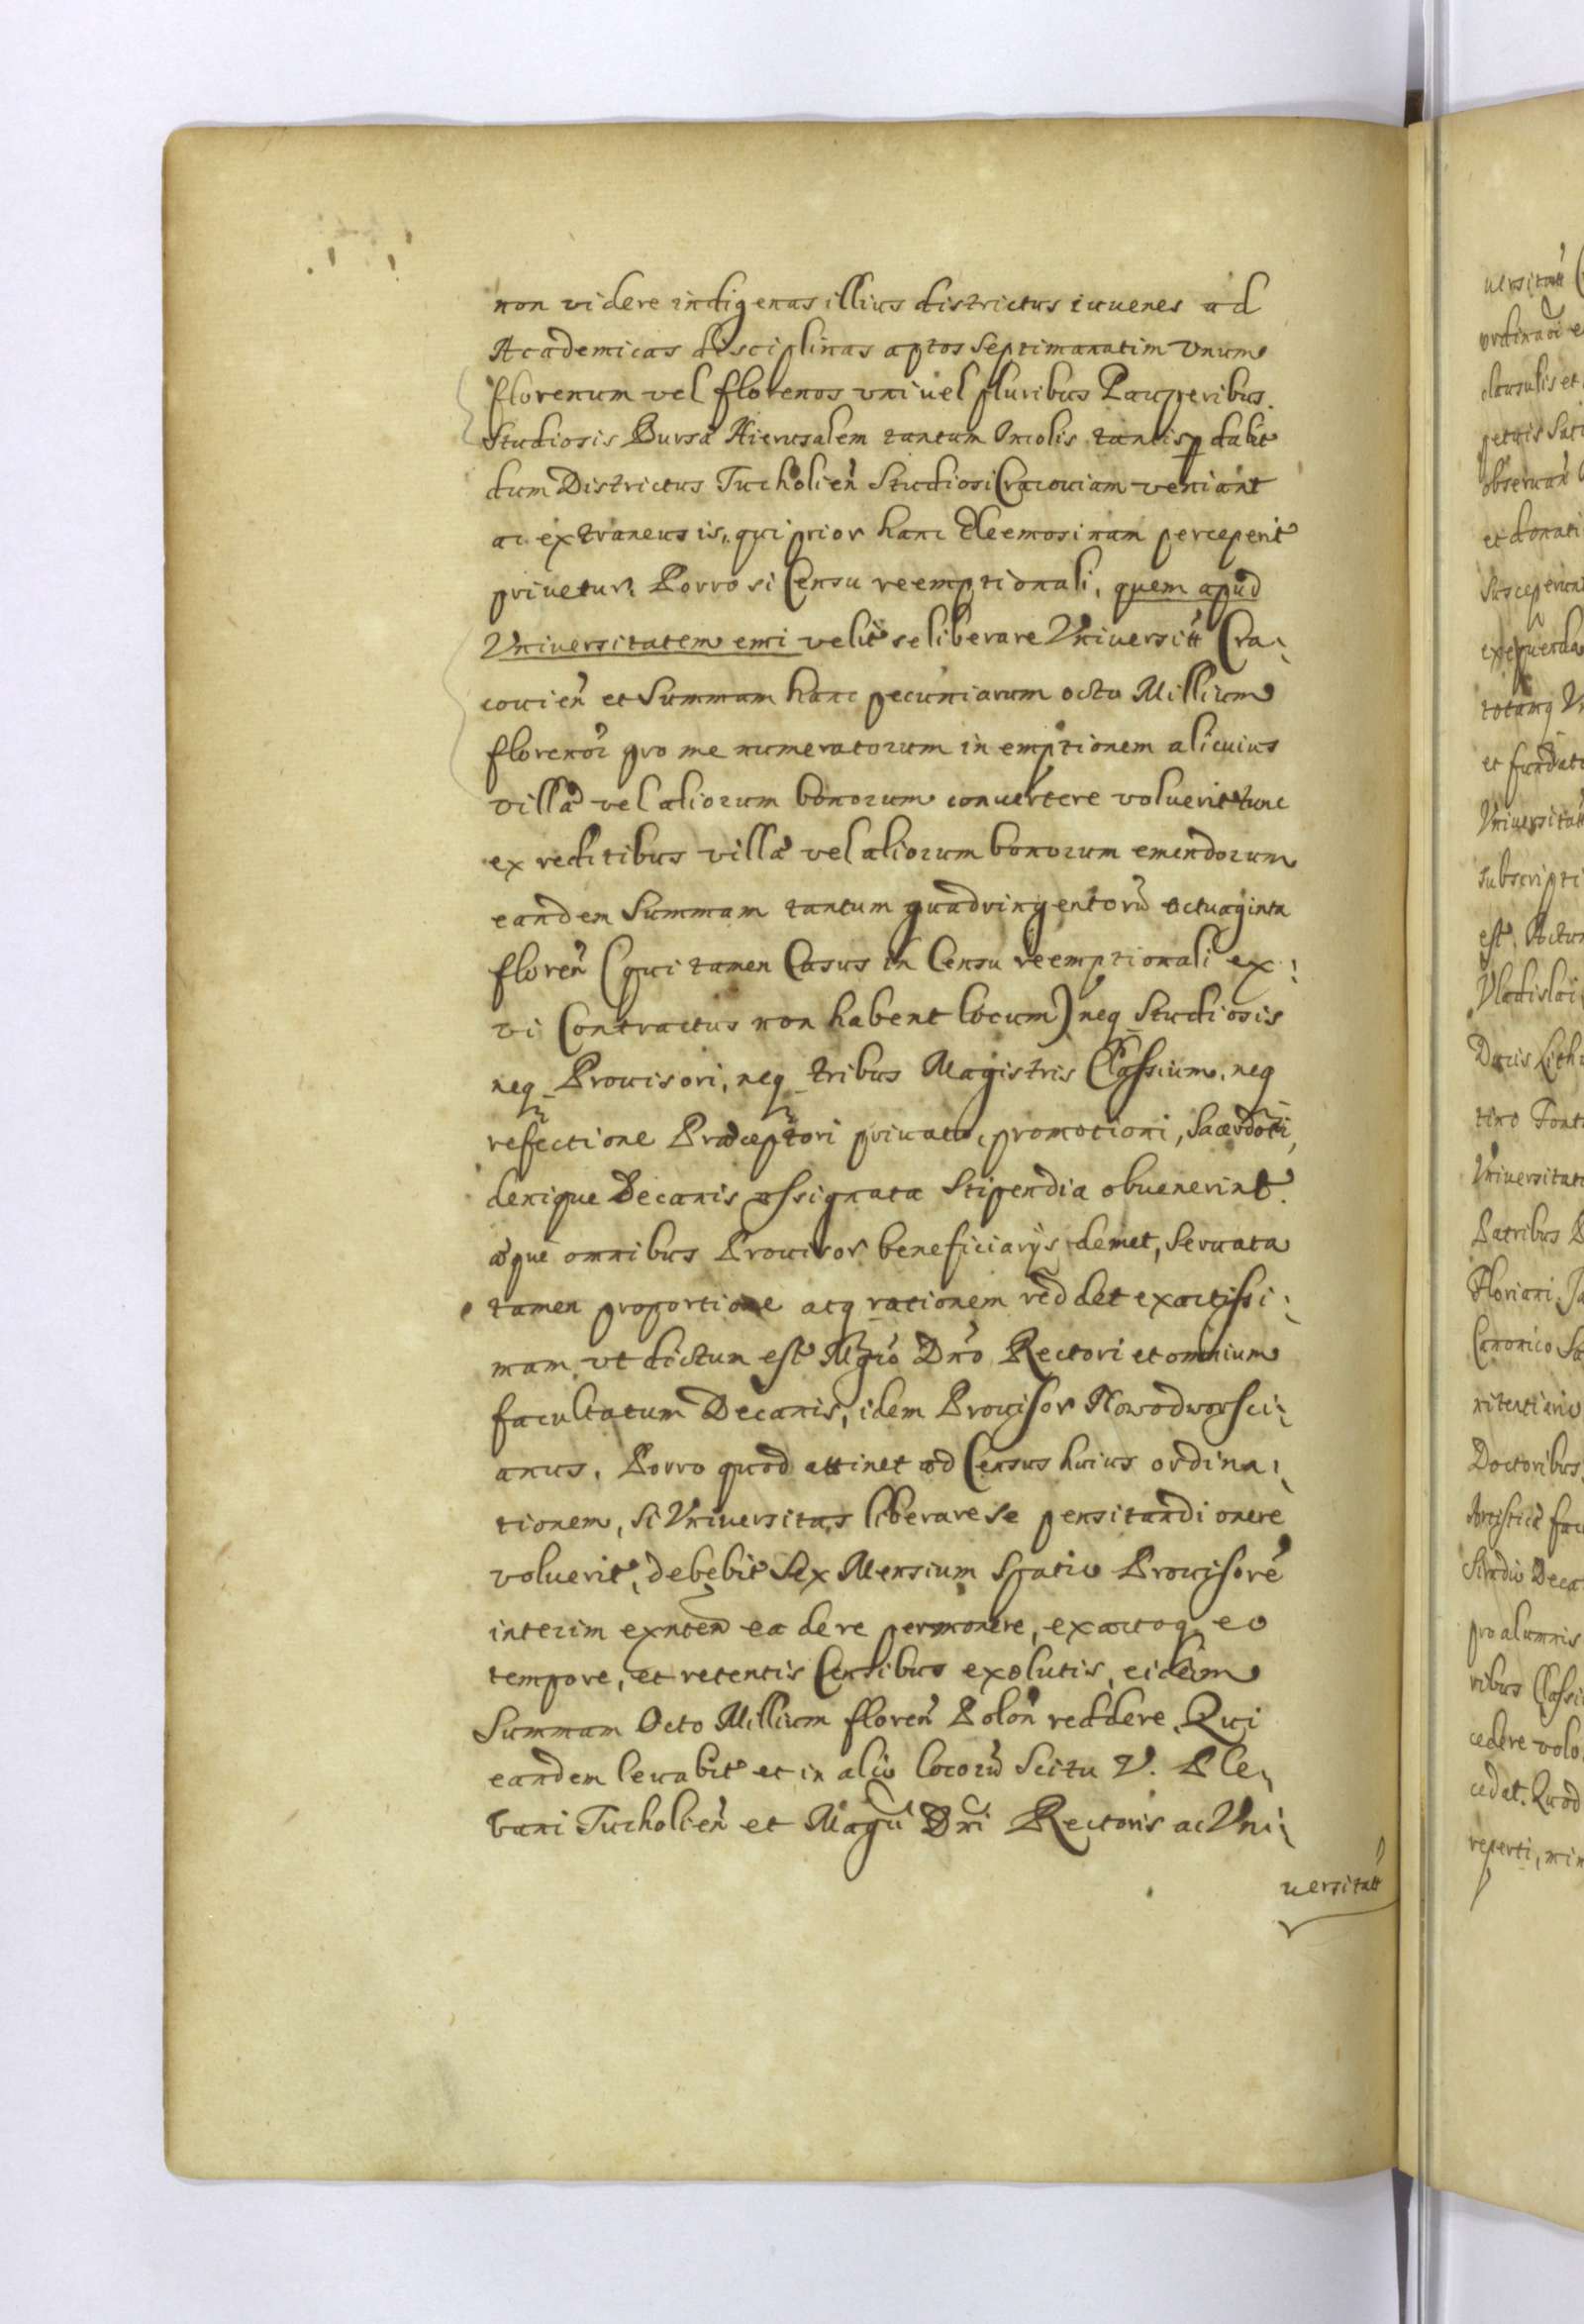 non videre indigenas illius districtus iuuenes ad
Academicas disciplinas aptos septimanatim vnum
florenum vel florenos vni uel pluribus Pauperibus
Studiosis Bursæ Hierusalem tantum Incolis tantisp dabit
dum Districtus Tucholien̄ Studiosi Cracouiam veniant
ac extraneus is, qui prior hanc Eleemosinam perceperit
priuetur. Porro si Censu reemptionali, quem apud
Vniversitatem emi velit se liberare Vniversitt Cra-
couien̄ et Summam hanc pecuniarum octo Millium
florenor̄ pro me numeratorum in emptionem alicuius
villæ vel aliorum bonorum conuertere voluerit tunc
ex reditibus villæ vel aliorum bonorum emendorum
eandem Summam tantum quadringentorū octuaginta
floren̄ (qui tamen Casus in Censu reemptionali ex
vi Contractus non habent locum) neq Studiosis
neq Prouisori, neq tribus Magistris Classium, neq
refectione Præceptori priuato, promotioni, Sacerdoti,
denique Decanis assignata Stipendia obuenerint.
æque omnibus Prouisor beneficiarijs demet, Seruata
tamen proportione atq rationem reddet exactissi-
mam, vt dictum est Mgco Dno Rectori et omnium
facultatum Decanis, idem Prouisor Nowodworsci-
anus. Porro quod attinet ad Census huius ordina-
tionem, Si Vniversitas liberare se pensitandi onere
voluerit, debebit Sex Mensium Spatio Prouisorē
interim exnten̄ ea de re permonere, exactoq eo
tempore, et retentis Censibus exolutis, eidem
Summam Octo Millium floren̄ Polon̄ reddere. Qui
eandem leuabit et in alio locorū Scitu V. Ple-
bani Tucholien̄ et Magci Dni Rectoris ac Vni-
uersitatt